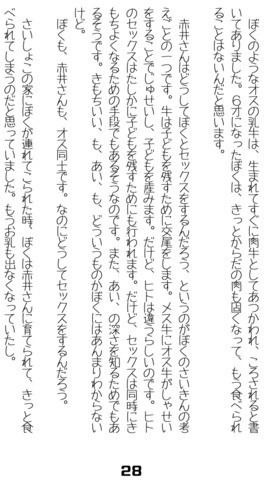 ぼくのようなオスの乳牛は、生まれてすぐに肉牛としてあつかわれ、ころされると書
いてありました。6才になったぼくは、きっとからだの肉も固くなって、もう食べられ
ることはないんだと思います。
赤井さんはどうしてぼくとセックスをするんだろう、というのがぼくのさいきんの考
えごとの一つです。牛は子どもを残すために交尾をします。メス牛にオス牛がしゃせい
をすることでじゅせいし、子どもを産みます。だけど、ヒトは違うらしいのです。ヒト
のセックスはたしかに子どもを残すためにも行われます。だけど、セックスは同時にき
もちよくなるための手段でもあるそうなのです。また、あい、の深さを知るためでもあ
るそうです。きもちいい、も、あい、も、どういうものかぼくにはあんまりわからない
けど。
ぼくも、赤井さんも、オス同士です。なのにどうしてセックスをするんだろう。
さいしょこの家にぼくが連れてこられた時、ぼくは赤井さんに育てられて、きっと食
べられてしまうのだと思っていました。もうお乳も出なくなっていたし。
28